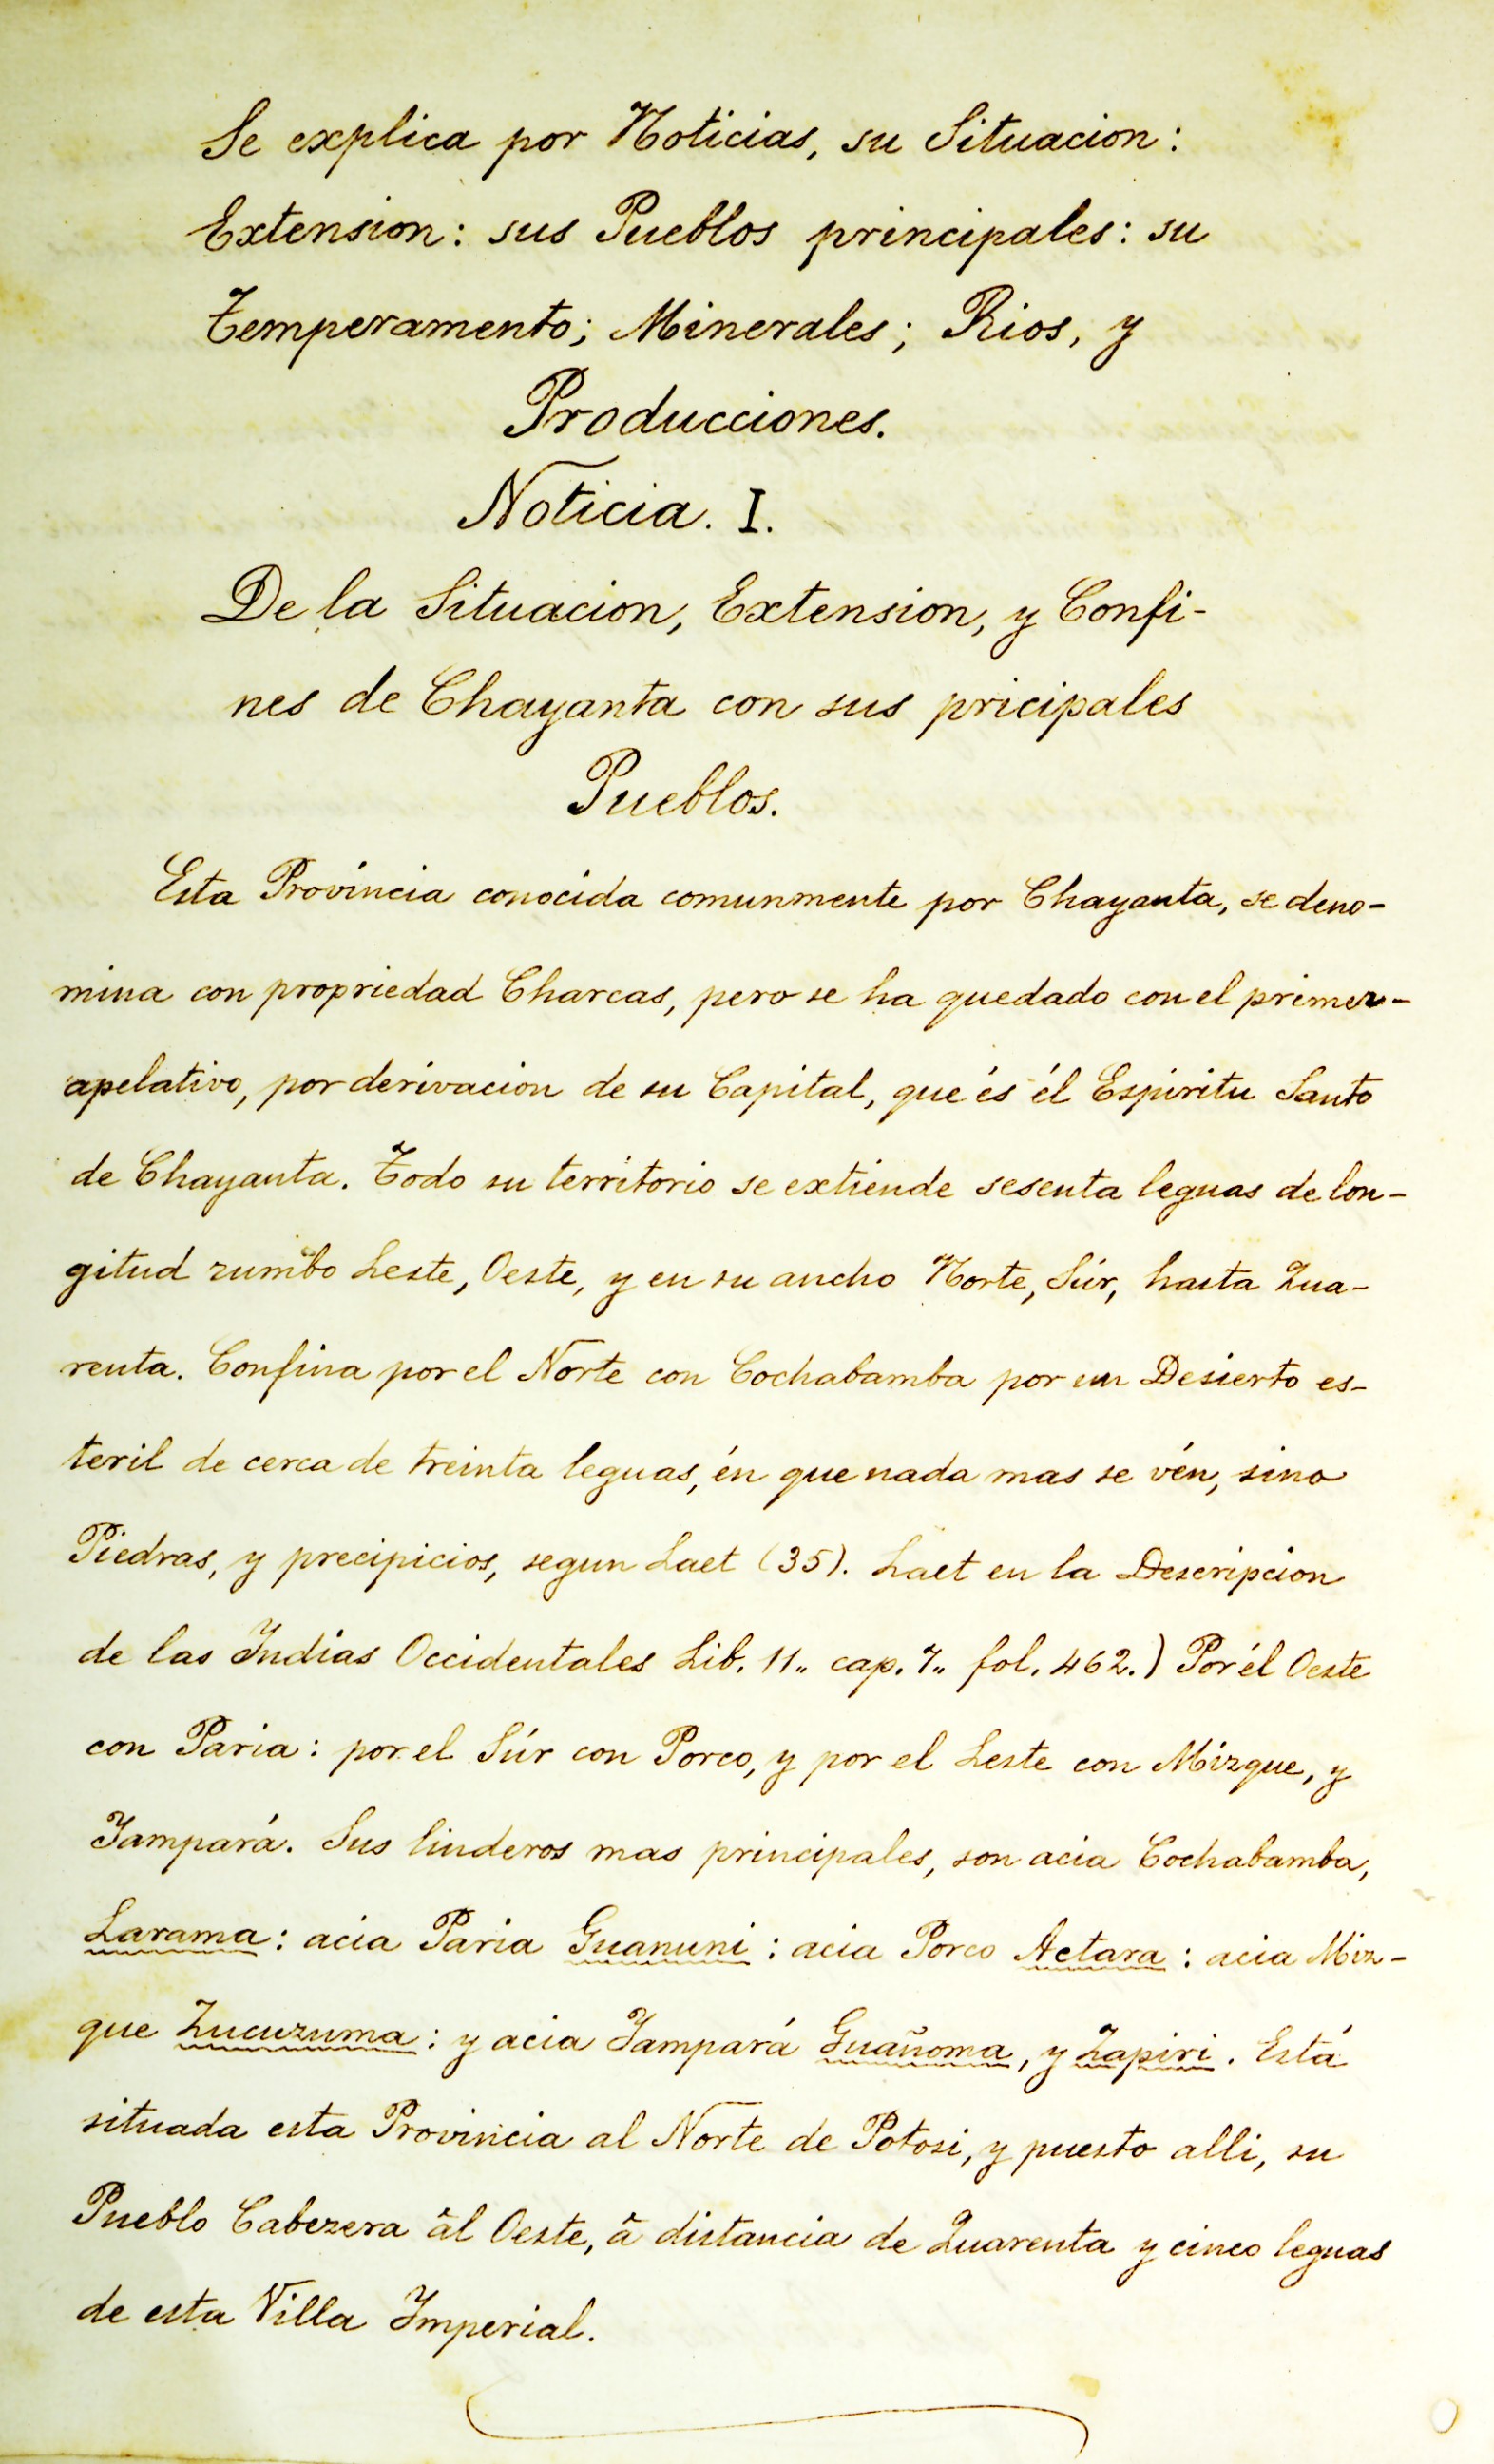 Se explica por Noticias, su Situacion:
Extension: sus Pueblos principales: su
Temperamento; Minerales; Rios, y
Producciones.
Noticia. I.
De la Situacion, Extension, y Confi-
nes de Chayanta con sus pricipales
Pueblos.
Esta Provincia conocida comunmente por Chayanta, se deno-
mina con propriedad Charcas, pero se ha quedado con el primer-
apelativo, por derivacion de su Capital, que és él Espiritu Santo
de Chayanta. Todo su territorio se extiende sesenta leguas de lon-
gitud rumbo Leste, Oeste, y en su ancho Norte, Súr, hasta Qua-
renta. Confina por el Norte con Cochabamba por un Desierto es-
teril de cerca de treinta leguas, én que nada mas se vén, sino
Piedras, y precipicios, segun Laet (35). Laet en la Descripcion
de las Indias Occidentales Lib. 11.. cap. 7.. fol. 462.) Por él Oeste
con Paria: por el Súr con Porco, y por el Leste con Mizque, y
Yampará. Sus linderos mas principales, son acia Cochabamba,
Larama: acia Paria Guanuni: acia Porco Actara: acia Miz-
que Zucuzuma: y acia Yampará Guañoma, y Zapiri. Está
situada esta Provincia al Norte de Potosi, y puesto alli, su
Pueblo Cabezera âl Oeste, â distancia de Quarenta y cinco leguas
de esta Villa Imperial.